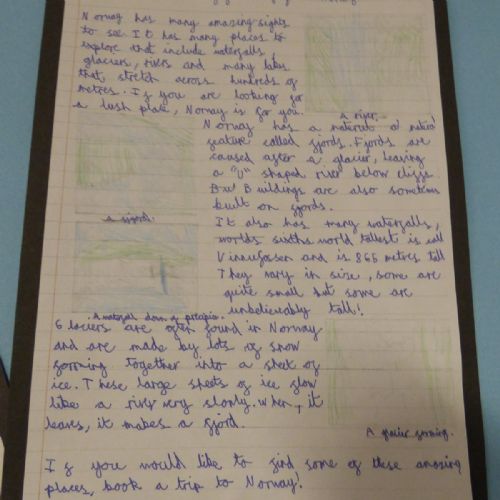 Norway has many amazing sights
to see. It has many places to
explore that include waterfalls,
glaciers, rivers and many lakes
that stretch across hundreds of
metres. If you are looking for
a lush place, Norway is for you.
A river.
Norway has a natural
feature called fjords. Fjords are
caused after a glacier, leaving
a "U" shaped river below cliffs.
Buildings are also sometimes
built on fjords.
a fjord.
It also has many waterfalls,
worlds sixths world tallest is call
Vinnufossen and is 865 metres tall
They vary in size, some are
quite small but some are
unbelievably tall!
A waterfall down of precipice.
Glaciers are often found in Norway
and are made by lots of snow
forming together into a sheet of
ice. These large sheets of ice flow
like a river very slowly. when, it
leaves, it makes a fjord.
A glacier forming.
If you would like to find some of these amazing
places, book a trip to Norway!